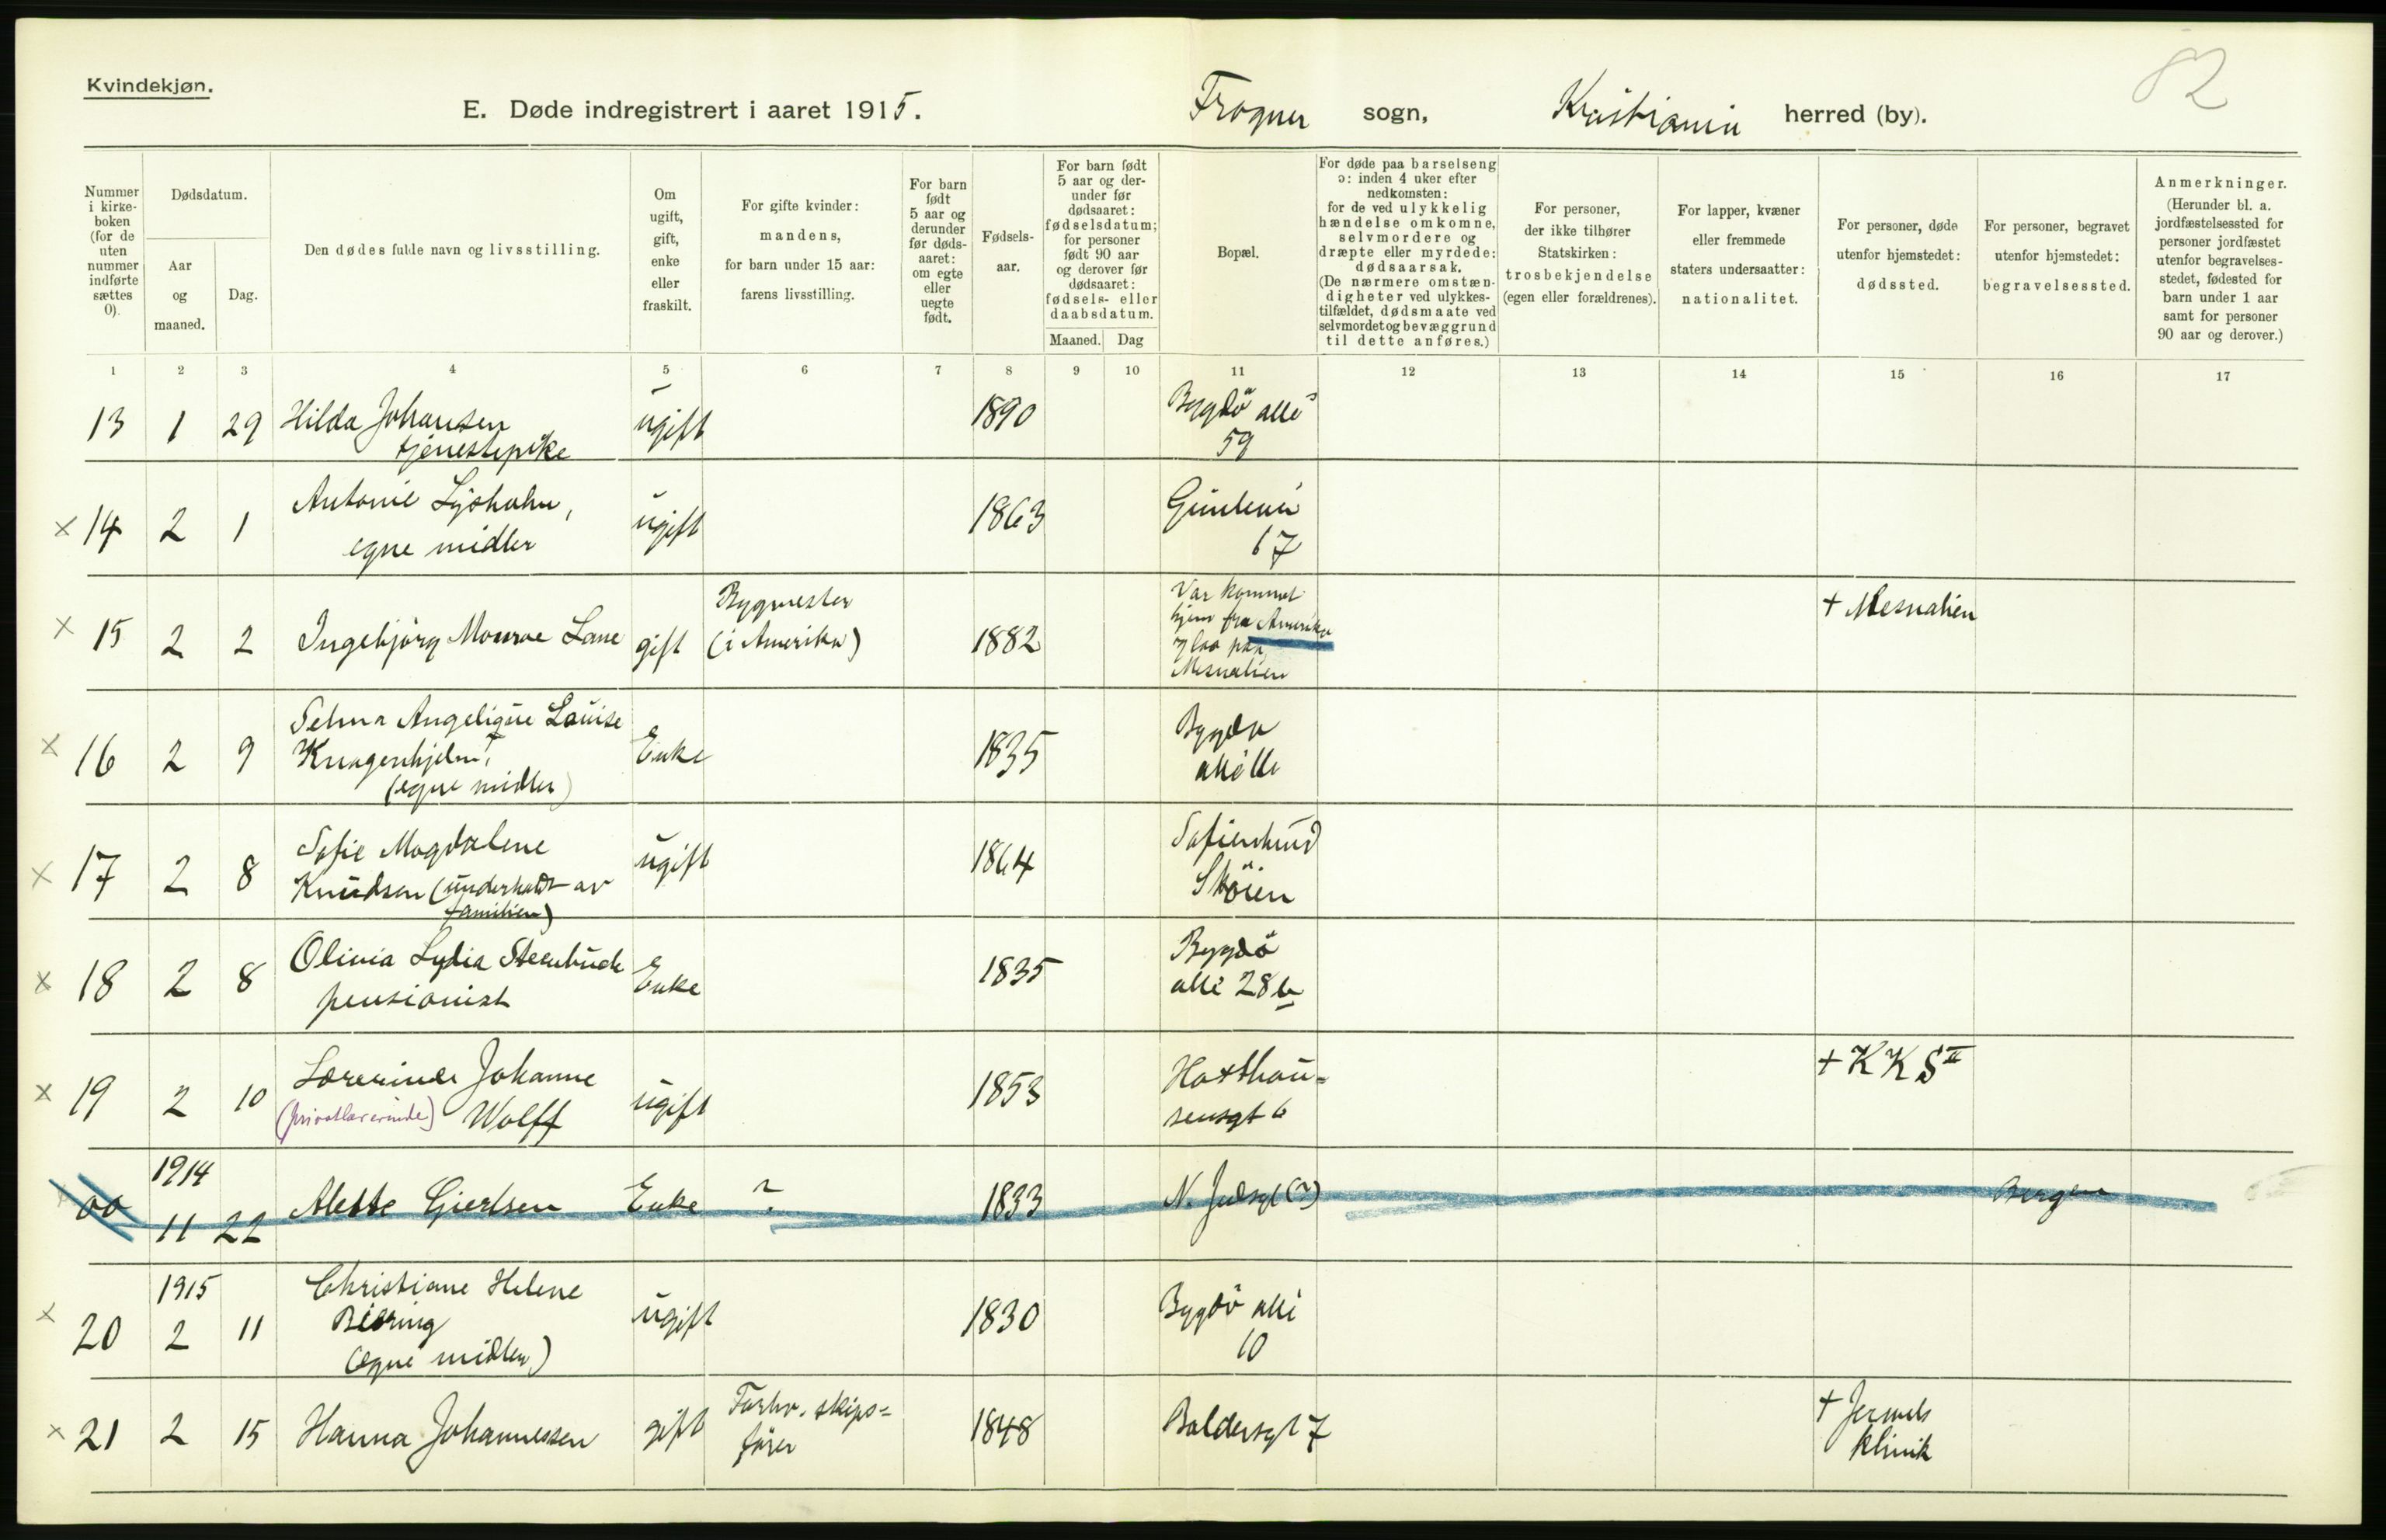 82
Kvindekjøn.
E. Døde indregistrert i aaret 1915. Frogner sogn, Kristiania herred (by).
Nummer i kirke-boken (for de uten nummer indførte sættes 0).
Dødsdatum.
Aar og maaned.
Dag.
Den dødes fulde navn og livsstilling.
Om ugift, gift, enke eller fraskilt.
For gifte kvinder: mandens, for barn under 15 aar: farens livsstilling.
For barn født 5 aar og derunder før døds-aaret: om egte eller uegte født.
Fødsels-aar.
For barn født 5 aar og der-under før dødsaaret: fødselsdatum; for personer født 90 aar og derover før dødsaaret: fødsels- eller daabsdatum.
Maaned. Dag
Bopæl.
For døde paa barselseng ɔ: inden 4 uker efter nedkomsten: for de ved ulykkelig hændelse omkomne, selvmordere og dræpte eller myrdede: dødsaarsak. (De nærmere omstæn-digheter ved ulykkes-tilfældet, dødsmaate ved selvmordet og bevæggrund til dette anføres.)
For personer, der ikke tilhører Statskirken: trosbekjendelse (egen eller forældrenes).
For lapper, kvæner eller fremmede staters undersaatter: nationalitet.
For personer, døde utenfor hjemstedet: dødssted.
For personer, begravet utenfor hjemstedet: begravelsessted.
Anmerkninger. (Herunder bl. a. jordfæstelsessted for personer jordfæstet utenfor begravelses-stedet, fødested for barn under 1 aar samt for personer 90 aar og derover.)
1 2 3 4 5 6 7 8 9 10 11 12 13 14 15 16 17
13 1 29 Hilda Johansen tjenestepike ugift 1890 Bygdö allé 59
x 14 2 1 Antonie Lysholm, egne midler ugift 1863 17
x 15 2 2 Ingebjörg Monroe Lane gift Bygmester (i Amerika) 1882 Var kommet hjem fra Amerika og laa paa Mesnalien + Mesnalien
x 16 2 9 Selma Angelique Louise Knagenhjelm (egne midler) Enke 1835 Bygdø allé
x 17 2 8 Sofie Magdalene Knudsen (underholdt av familien) ugift 1864 Sofienlund Sköien
x 18 2 8 Olivia Lydia Steenbuch pensionist Enke 1835 Bygdö allé 28 b
x 19 2 10 Lærerinde Johanne Wolff (privatlærerinde) ugift 1853 Haxthau=sensgt 6 + K K S II
00 1914 11 22 Alette Giertsen Enke ? 1833 N. Juelsgt (?) Bergen
x 20 1915 2 11 Christiane Helene Biering (egne midler) ugift 1830 Bygdö allé 10
x 21 2 15 Hanna Johannessen gift Forhv. skips=fører 1848 Baldersgt 7 + klinik